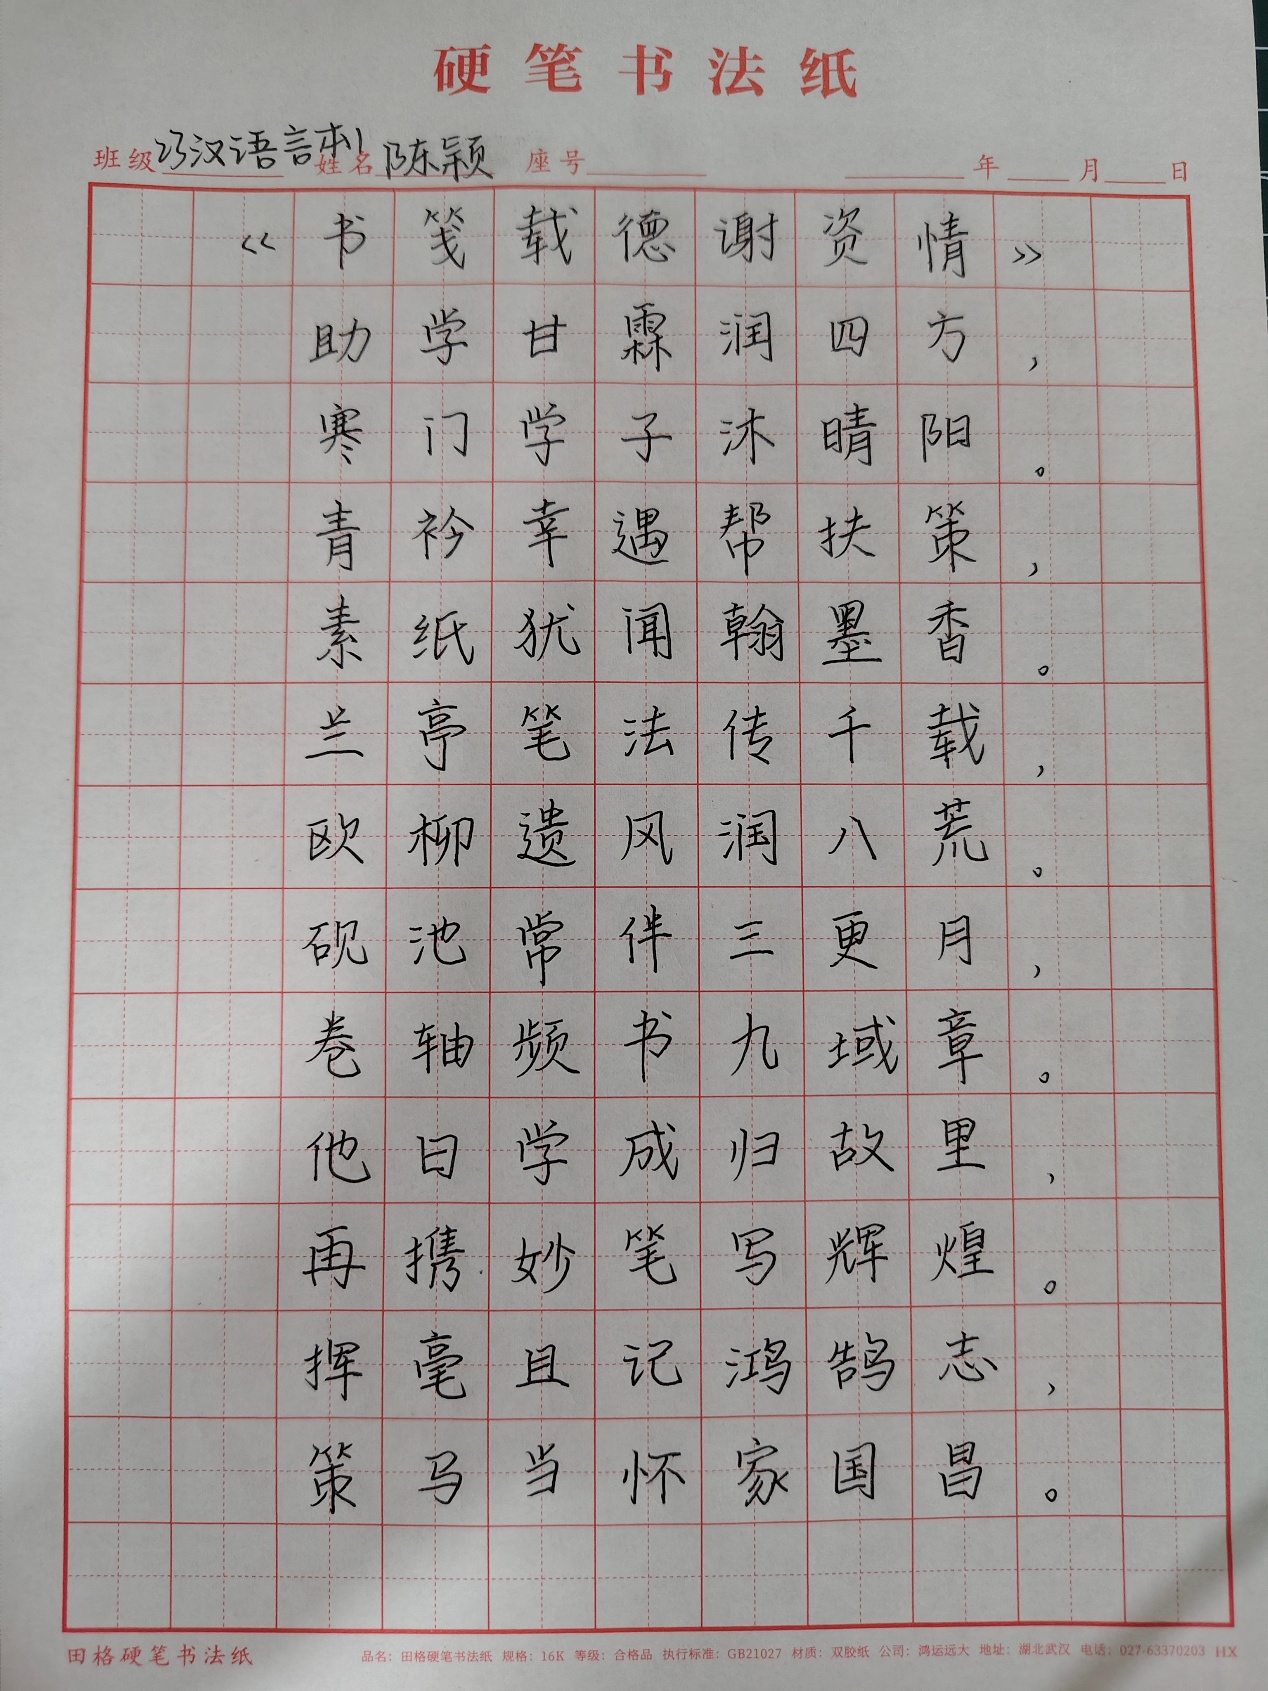 硬笔书法纸
班级 23汉语言本1 姓名 陈颖 座号 年 月 日
《书笺载德谢资情》
助学甘霖润四方，
寒门学子沐晴阳。
青衿幸遇帮扶策，
素纸犹闻翰墨香。
兰亭笔法传千载，
欧柳遗风润八荒。
砚池常伴三更月，
卷轴频书九域章。
他日学成归故里，
再携妙笔写辉煌。
挥毫且记鸿鹄志，
策马当怀家国昌。
田格硬笔书法纸 品名：田格硬笔书法纸 规格：16K 等级：合格品 执行标准：GB21027 材质：双胶纸 公司：鸿运远大 地址：湖北武汉 电话：027-63370203 HX